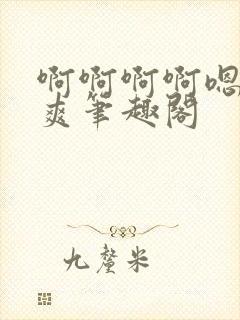 啊啊啊啊嗯
爽笔趣阁
九厘米